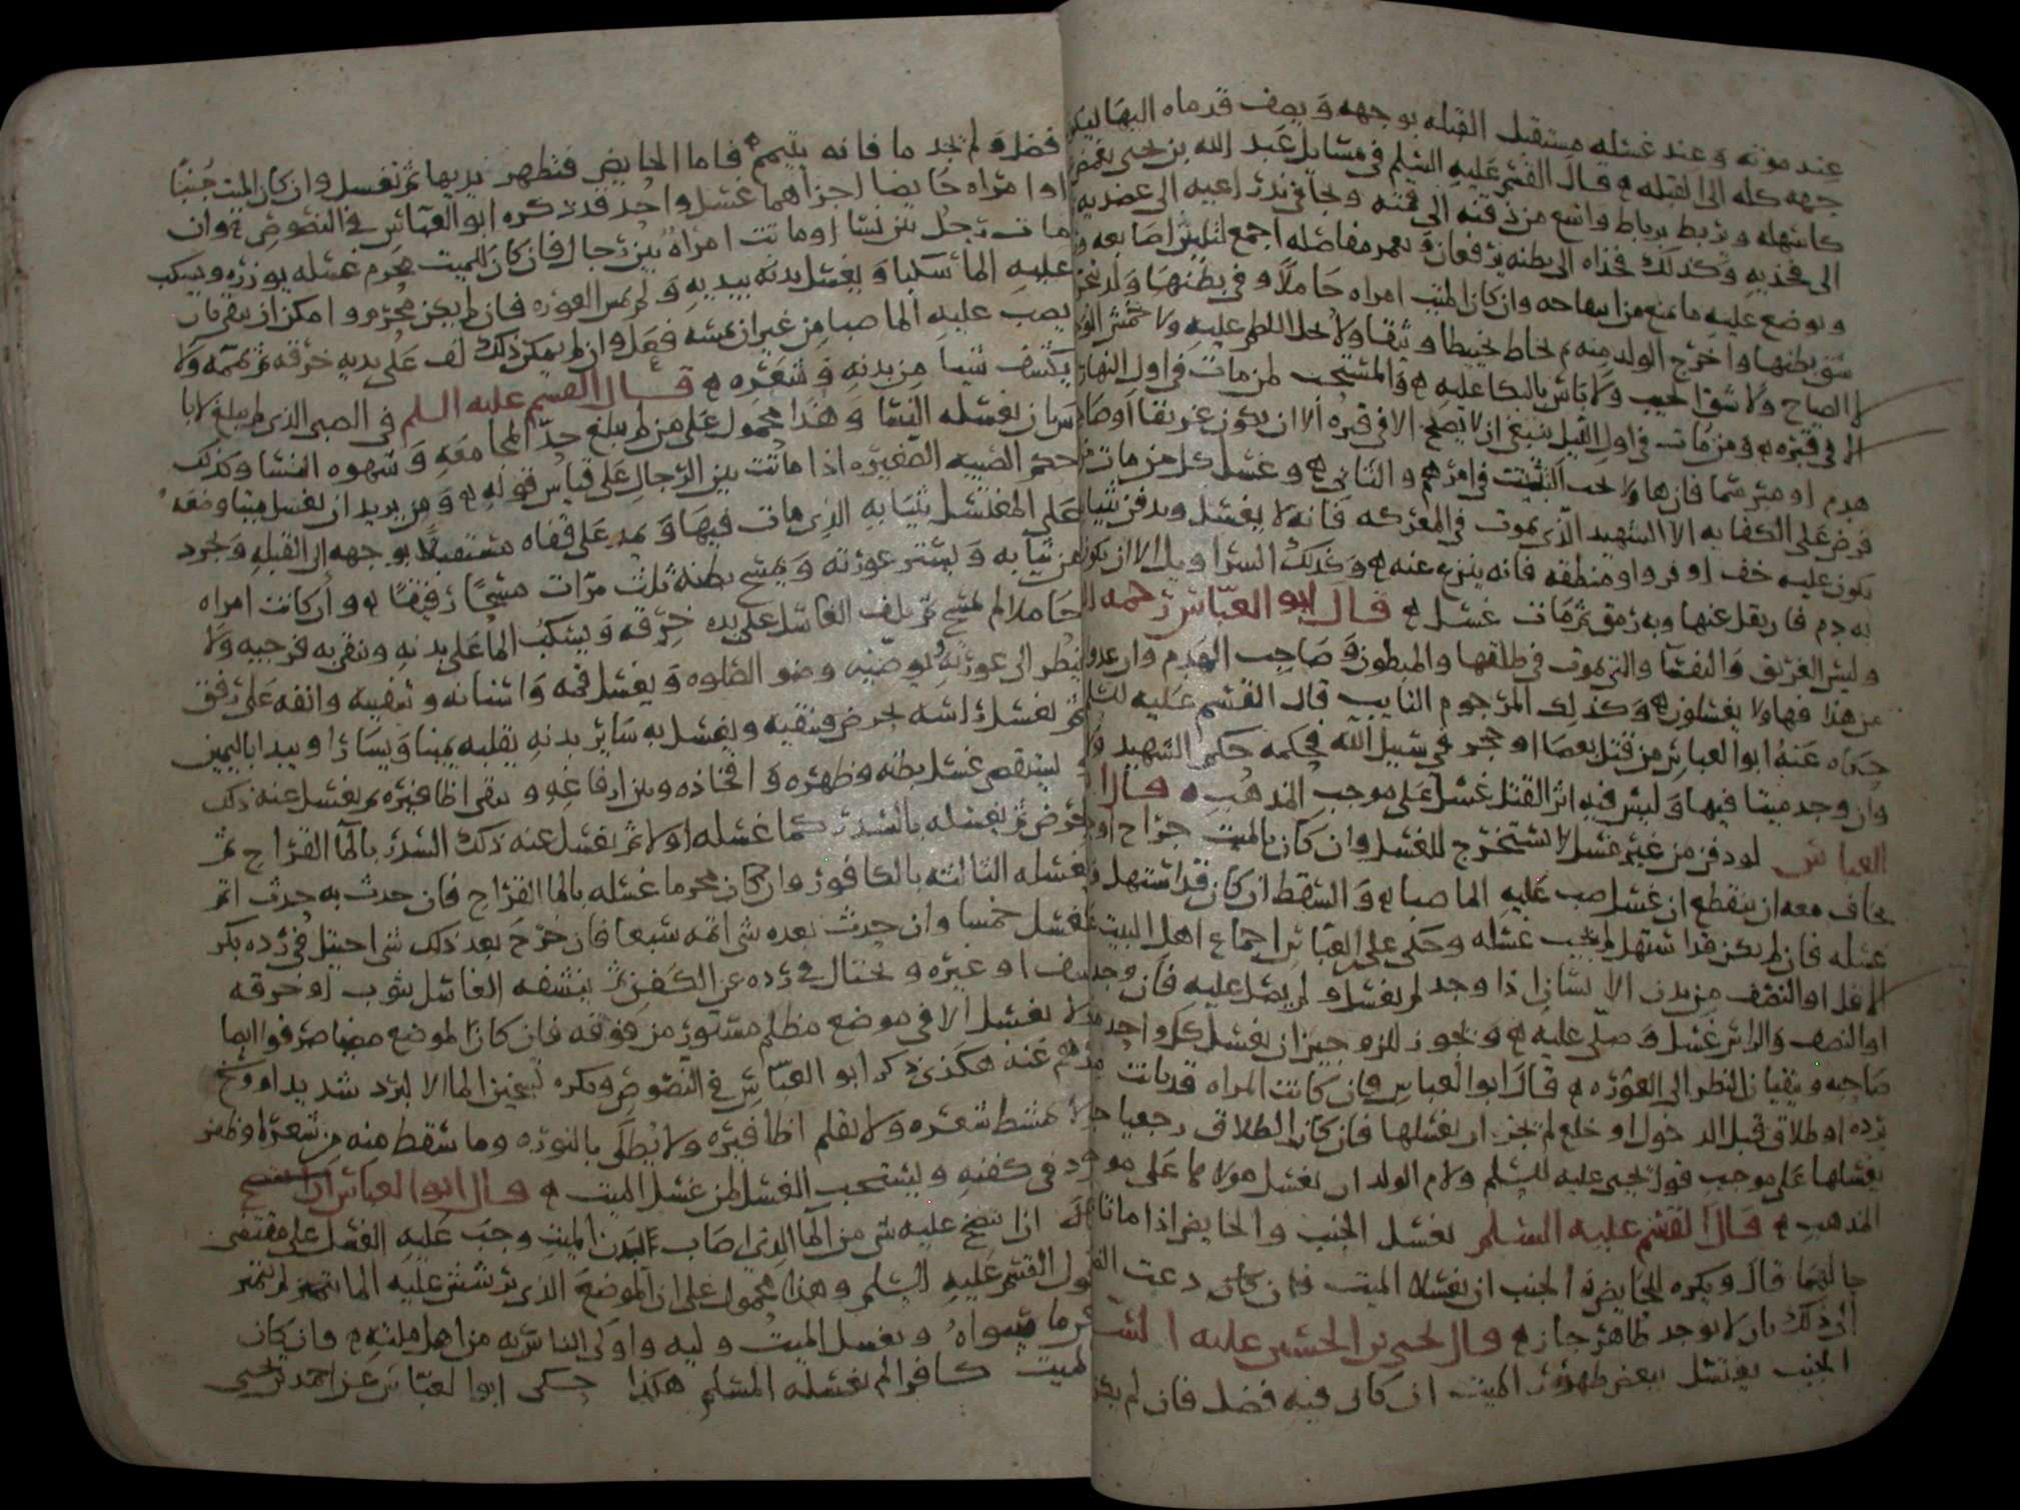 عند موته وعند غسله مستقبل القبله بوجهه ويصف قدماه اليها ليكن
جهه كله الى القبله ه قال القسم عليه السلم في مسايل عبد الله بن يحيى يغمض
كاشهله ويربط برباط واسع من ذقنه الى قمته وتجافى ذراعيه الى عضديه
الى فخذيه وكذلك فخذاه الى بطنه يرفعان ويعمر مفاصله اجمع لتلين اصابعه و
ويوضع عليه ما يمنع من انتفاحه وان كان الميت امراه حاملا وفي بطنها ولد
شق بطنها واخرج الولد منه ثم يخاط تخييطا وثيقا ولا يحل اللطم عليه ولا خمش الوجه
والصياح ولا شق الجيب ولا باس بالبكا عليه ه والمستحب لمن مات في اول النهار
الا في قبره ه ومن مات في اول الليل ينبغي ان لا يصبح الا في قبره الا ان يكون غريقا او صا
هدم او مبرسما فان هاولا يحب التثبت في امرهم والتاني ه وغسل كل من مات
فرض على الكفايه الا الشهيد الذي يموت في المعركه فانه لا يغسل ويدفن بثيا
يكون عليه خف او فرو او منطقه فانه ينزع عنه ه وكذلك السراويل الا ان يكو
به دم فان نقل عنها وبه رمق ثم مات غسل ه قال ابو العباس رحمه
وليس الغريق والنفسا والتي تموت في طلقها والمبطون وصاحب الهدم وان عدوا
من هذا فهاولا يغسلون ه وكذلك المرجوم التايب قال القسم عليه السلم
حكاه عنه ابو العباس من قتل بعصا او حجر في سبيل الله فحكمه حكم الشهيد
وان وجد ميتا فيها وليس فيه اثر القتل غسل على موجب المذهب ه قال ا
العباس لو دفن من غير غسل لا يستخرج للغسل وان كان بالميت جراح او
يخاف معه ان ينقطع ان غسل صب عليه الما صبا ه والسقط ان كان قد استهل
غسله فان لم يكن قد استهل لم يجب غسله وحكى على العباس اجماع اهل البيت
الاقل او النصف من بدن الانسان اذا وجد لم يغسل ولم يصل عليه فان وجد
او النصف والراس غسل وصلى عليه ه ويجوز للزوجين ان يغسل كل واحد
صاحبه ويتقيان النظر الى العوره ه قال ابو العباس فان كانت المراه قد بانت
برده او طلاق قبل الدخول او خلع لم يجز ان يغسلها فان كان الطلاق رجعيا
يغسلها على موجب قول يحيى عليه السلم ولام الولد ان تغسل مولاها على مو
المذهب ه قال القسم عليه السلم يغسل الجنب والحايض اذا ماتا
حالتهما قال ويكره للحايض والجنب ان يغسلا الميت فان كان دعت
الى ذلك بان لا يوجد طاهر جاز ه قال يحيى بن الحسين عليه السلم
الجنب يغتسل ببعض طهور الميت ان كان فيه فضل فان لم يكن
فضل ولم يجد ما فانه يتيمم ه فاما الحايض فتطهر يديها ثم تغسل وان كان الميت جنبا
او امراه حايضا اجزاهما غسل واحد قد ذكره ابو العباس في النصوص ه وان
مات رجل بين نسا او ماتت امراه بين رجال فان كان للميت محرم غسله يوزره ويسكب
عليه الما سكبا ويغسل بدنه بيديه ولم يمس العوره فان لم يكن محرم وامكن ان ينقى بان
يصب عليه الما صبا من غير ان يمسه فعل وان لم يمكن ذلك لف على يديه خرقه ثم يممه ولا
يكشف شيا من بدنه وشعره ه قال القسم عليه السلم في الصبي الذي لم يبلغ لا با
س بان يغسله النسا وهذا محمول على من لم يبلغ حد المجامعه وشهوه النسا وكذلك
حكم الصبيه الصغيره اذا ماتت بين الرجال على قياس قوله ه ومن يريد ان يغسل ميتا وضعه
على المغتسل بثيابه الذي مات فيها ويمد على قفاه مستقبلا بوجهه الى القبله وجرد
من ثيابه ويستر عورته ويمسح بطنه ثلث مرات مسحا رفيقا ه وان كانت امراه
حاملا لم يمسح ثم يلف الغاسل على يده خرقه ويسكب الما على بدنه وينقي به فرجيه ولا
ينظر الى عورته ثم يوضيه وضو الصلوه ويغسل فمه واسنانه وشفتيه وانفه على رفق
ثم يغسل راسه بحرض فينقيه ويغسل به ساير بدنه يقلبه يمينا ويسارا ويبدا باليمين
يستقصي غسل بطنه وظهره وافخاذه وبين ارفاغه وينقي اظافيره ثم يغسل عنه ذلك
الحرض ثم يغسله بالسدر كما غسله اولا ثم يغسل عنه ذلك السدر بالما القراح ثم
يغسله الثالثه بالكافور وان كان محرما غسله بالما القراح فان حدث به حدث اتم
غسل خمسا وان حدث بعده شي اتمه سبعا فان خرج بعد ذلك شي احتيل في رده بكر
سف او غيره ويحتال في رده عن الكفن ثم ينشفه الغاسل بثوب او خرقه
ولا يغسل الا في موضع مظلم مستور من فوقه فان كان الموضع مضيا صرفوا ابصا
رهم عنه هكذى ذكر ابو العباس في النصوص ويكره تسخين الما الا لبرد شديد او وسخ
ولا يمشط شعره ولا تقلم اظافيره ولا يطلى بالنوره وما سقط منه من شعره او ظفر
رد في كفنه ويستحب الغسل لمن غسل الميت ه قال ابو العباس
اذا نضح عليه شي من الما الذي اصاب بدن الميت وجب عليه الغسل على مقتضى
قول القسم عليه السلم وهذا محمول على ان الموضع الذي ترشش عليه الما لم يتميز
عن ما سواه ويغسل الميت وليه واولى الناس به من اهل ملته ه فان كان
الميت كافرا لم يغسله المسلم هكذا حكى ابو العباس عن احمد بن يحيى